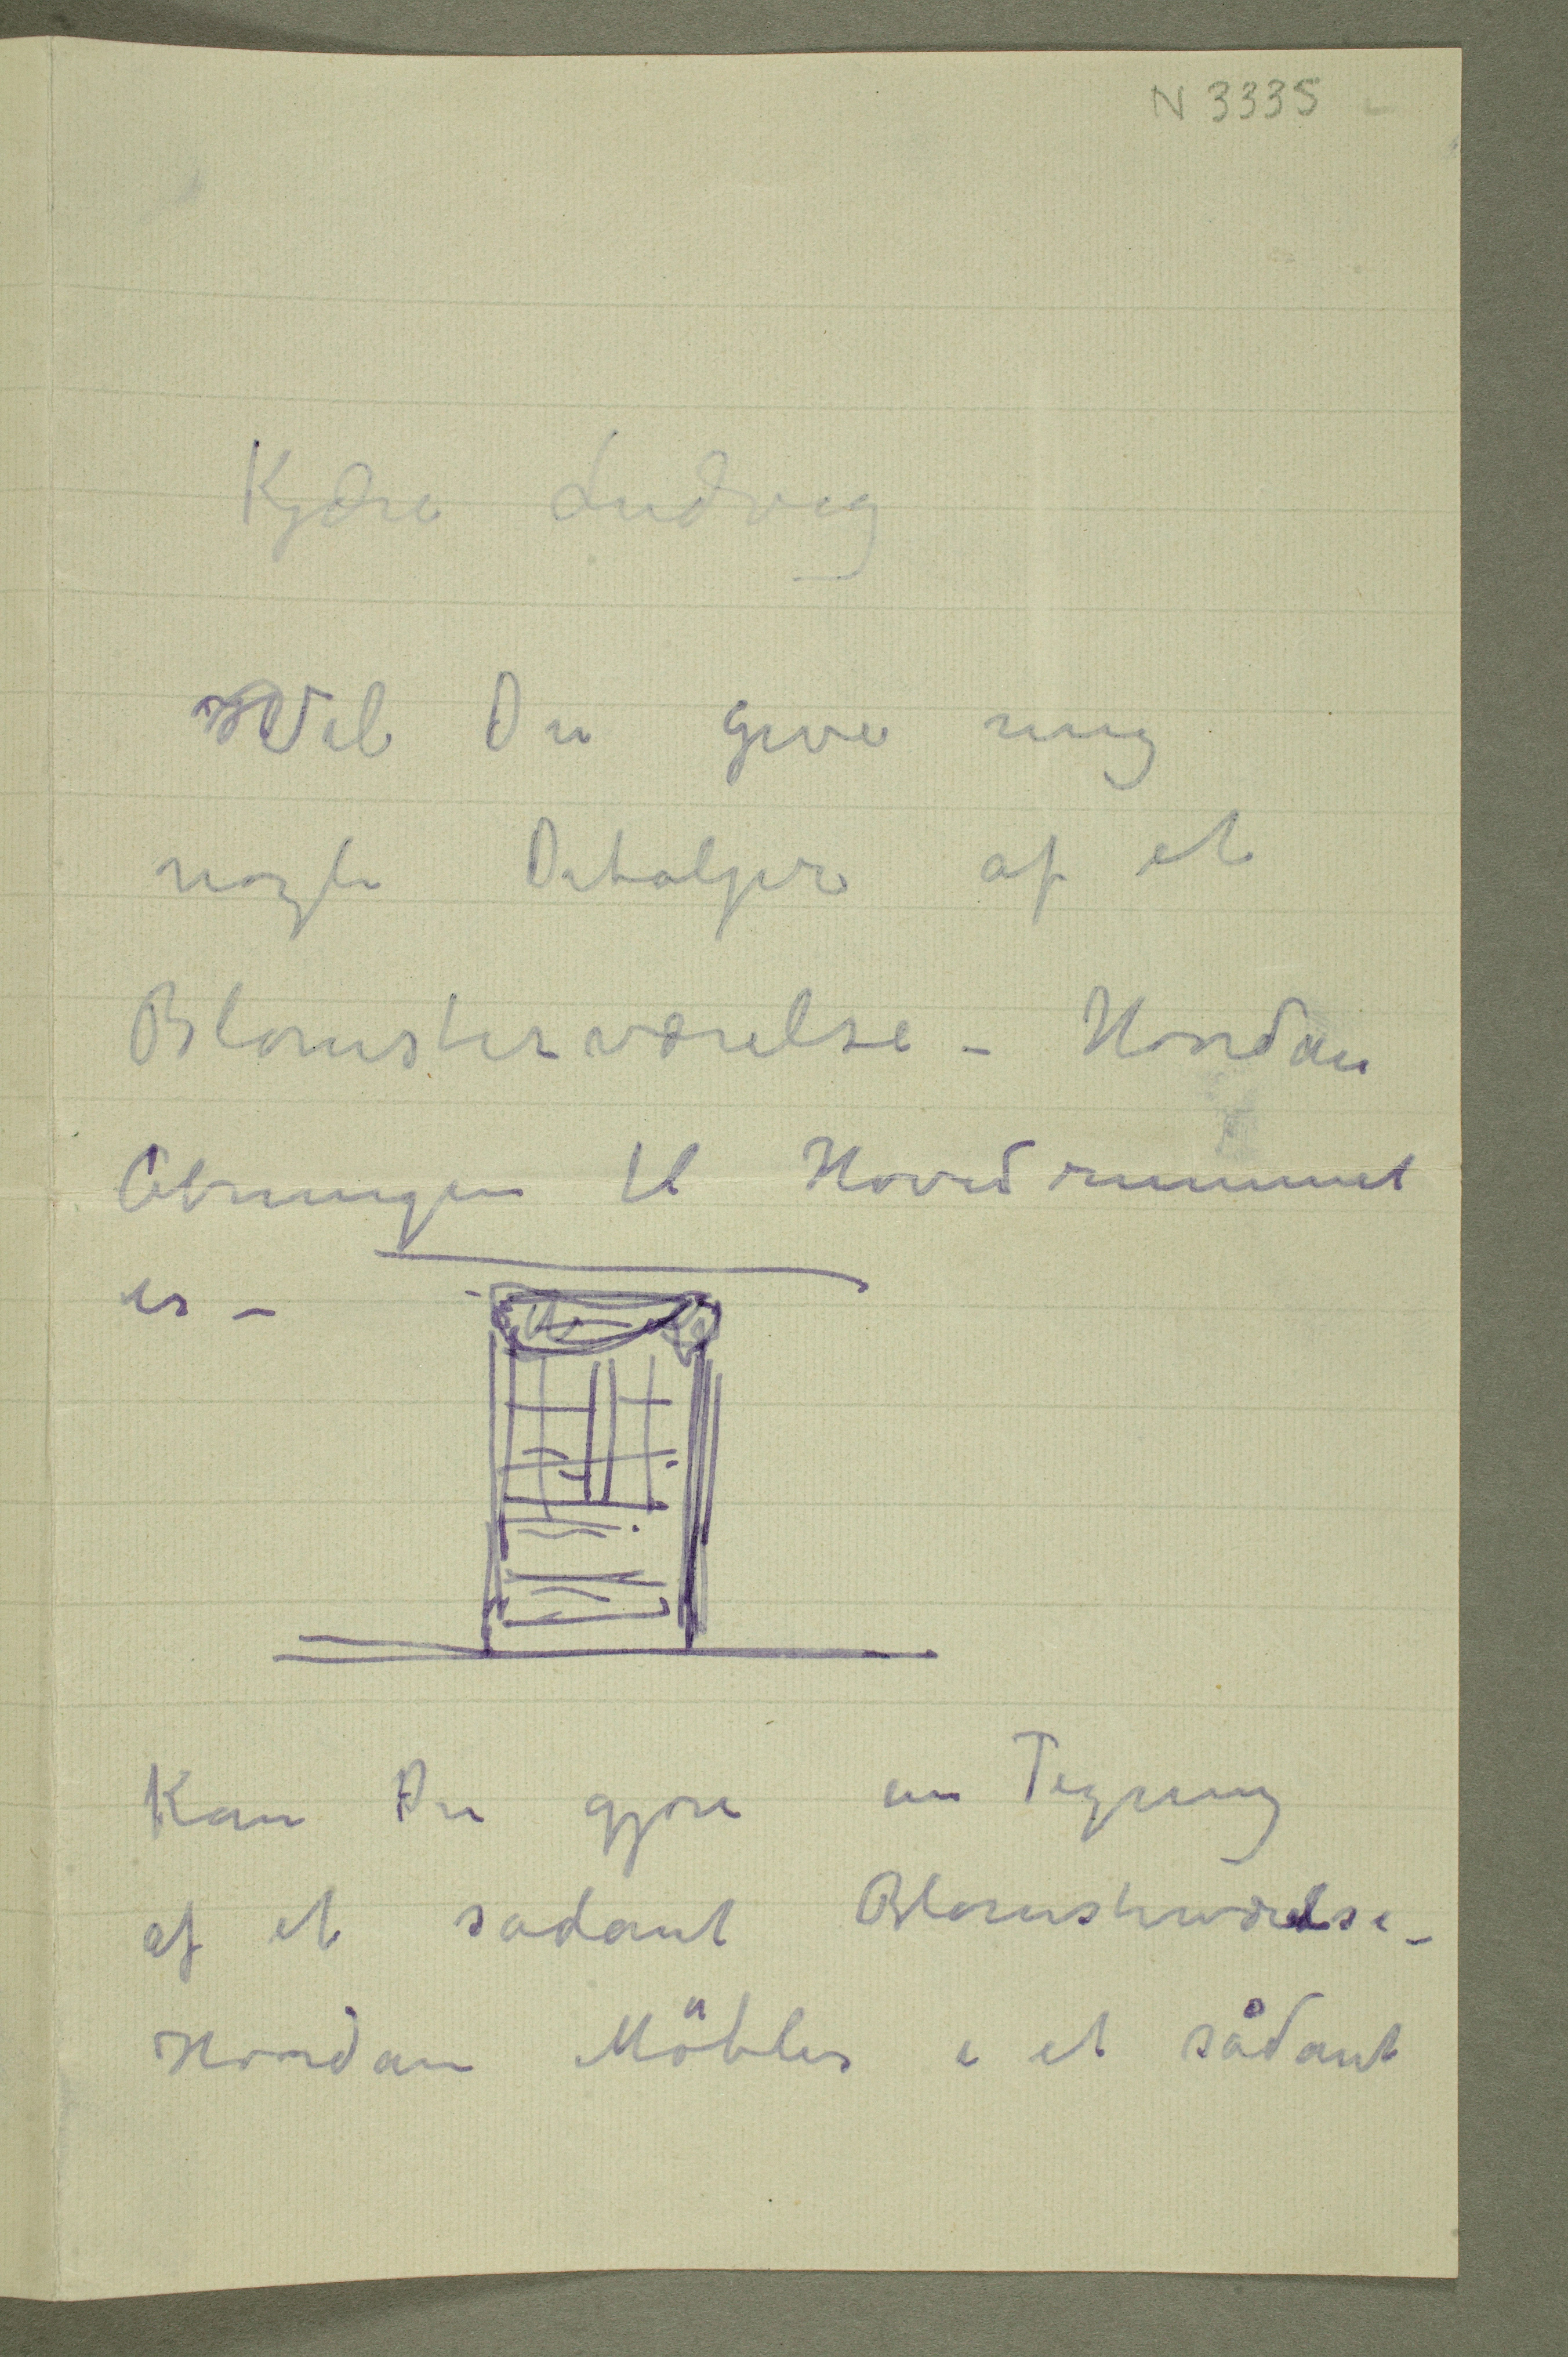 N 3335
Kjære Ludvig
Vil Du give mig
nogle Detaljer af et
Blomsterværelse – Hvordan
Åbningen til Hovedrummet
er –
Kan Du gjøre en Tegning
af et sadant Blomsterværelse –
Hvordan Möbler i et sådant